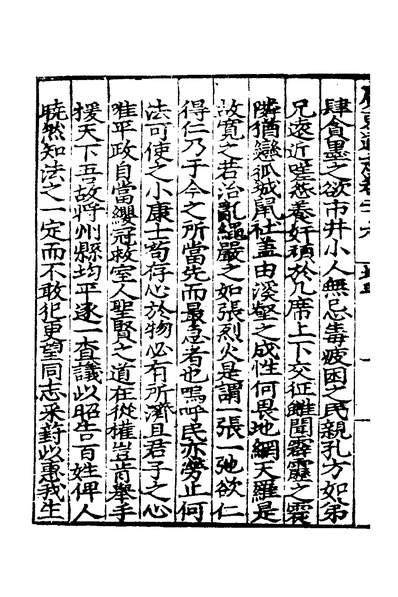 肆貪墨之欲市井小人無忌毒疲困之民親孔方如弟
兄遠近嗟怨養奸積於几席上下交征雖聞霹靂之震
隣猶戀狐城鼠社蓋由溪壑之成性何畏地網天羅是
故寬之若治亂繩嚴之如張烈火是謂一張一弛欲仁
得仁乃于今之所當先而最急者也嗚呼民亦勞止何
法可使之小康士苟存心於物必有所濟且君子之心
惟平政自當纓冠救室人聖賢之道在從權豈肯舉手
援天下吾故將州縣均平逐一查議以昭告百姓俾人
曉然知法之一定而不敢犯更望同志采葑以惠我生